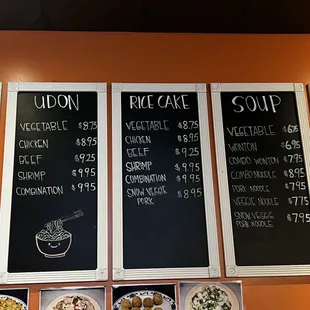 UDON
VEGETABLE $8.75
CHICKEN $8.95
BEEF $9.25
SHRIMP $9.95
COMBINATION $9.95
RICE CAKE
VEGETABLE $8.75
CHICKEN $8.95
BEEF $9.25
SHRIMP $9.95
COMBINATION $9.95
SNOW VEGGIE $8.95
PORK
SOUP
VEGETABLE $6.75
WONTON $6.95
COMBO WONTON $7.95
COMBO NOODLE $8.95
PORK NOODLE $7.95
VEGGIE NOODLE $7.75
SNOW VEGGIE $7.95
PORK NOODLE